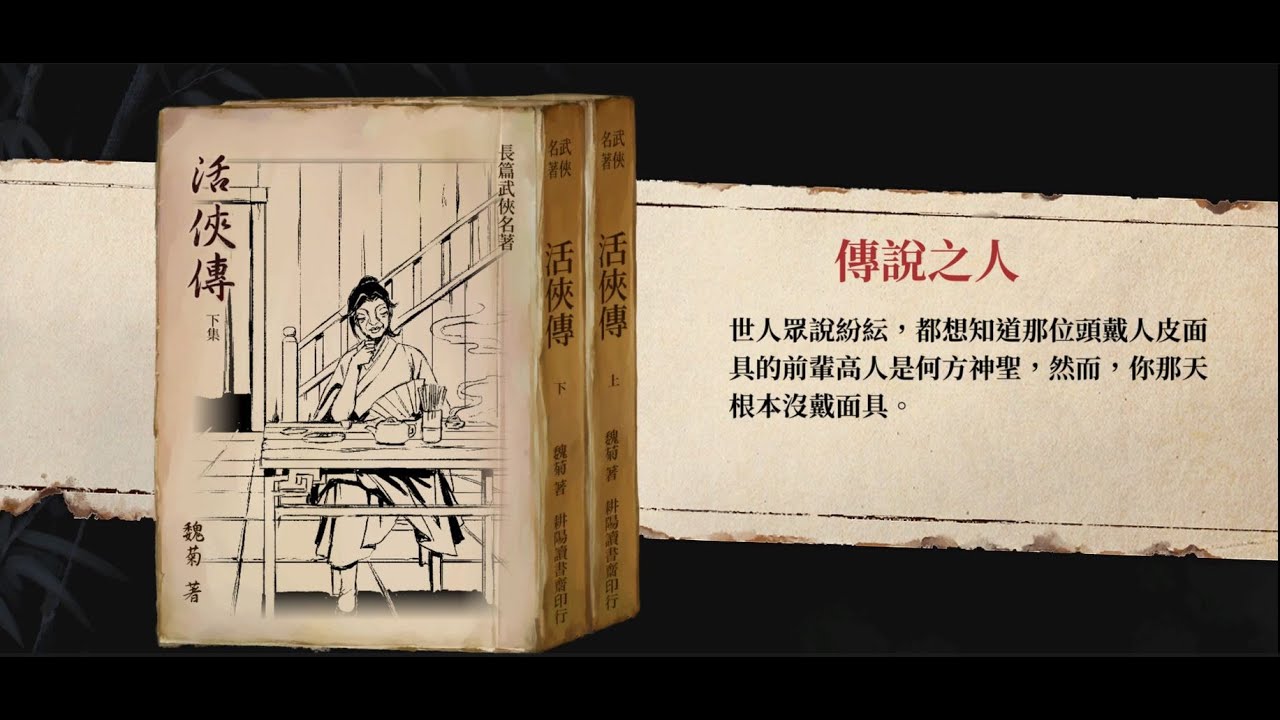 活俠傳
下集
魏菊 著
長篇武俠名著
武俠名著
活俠傳
下
魏菊 著
耕陽讀書齋印行
武俠名著
活俠傳
上
魏菊 著
耕陽讀書齋印行
傳說之人
世人眾說紛紜，都想知道那位頭戴人皮面
具的前輩高人是何方神聖，然而，你那天
根本沒戴面具。